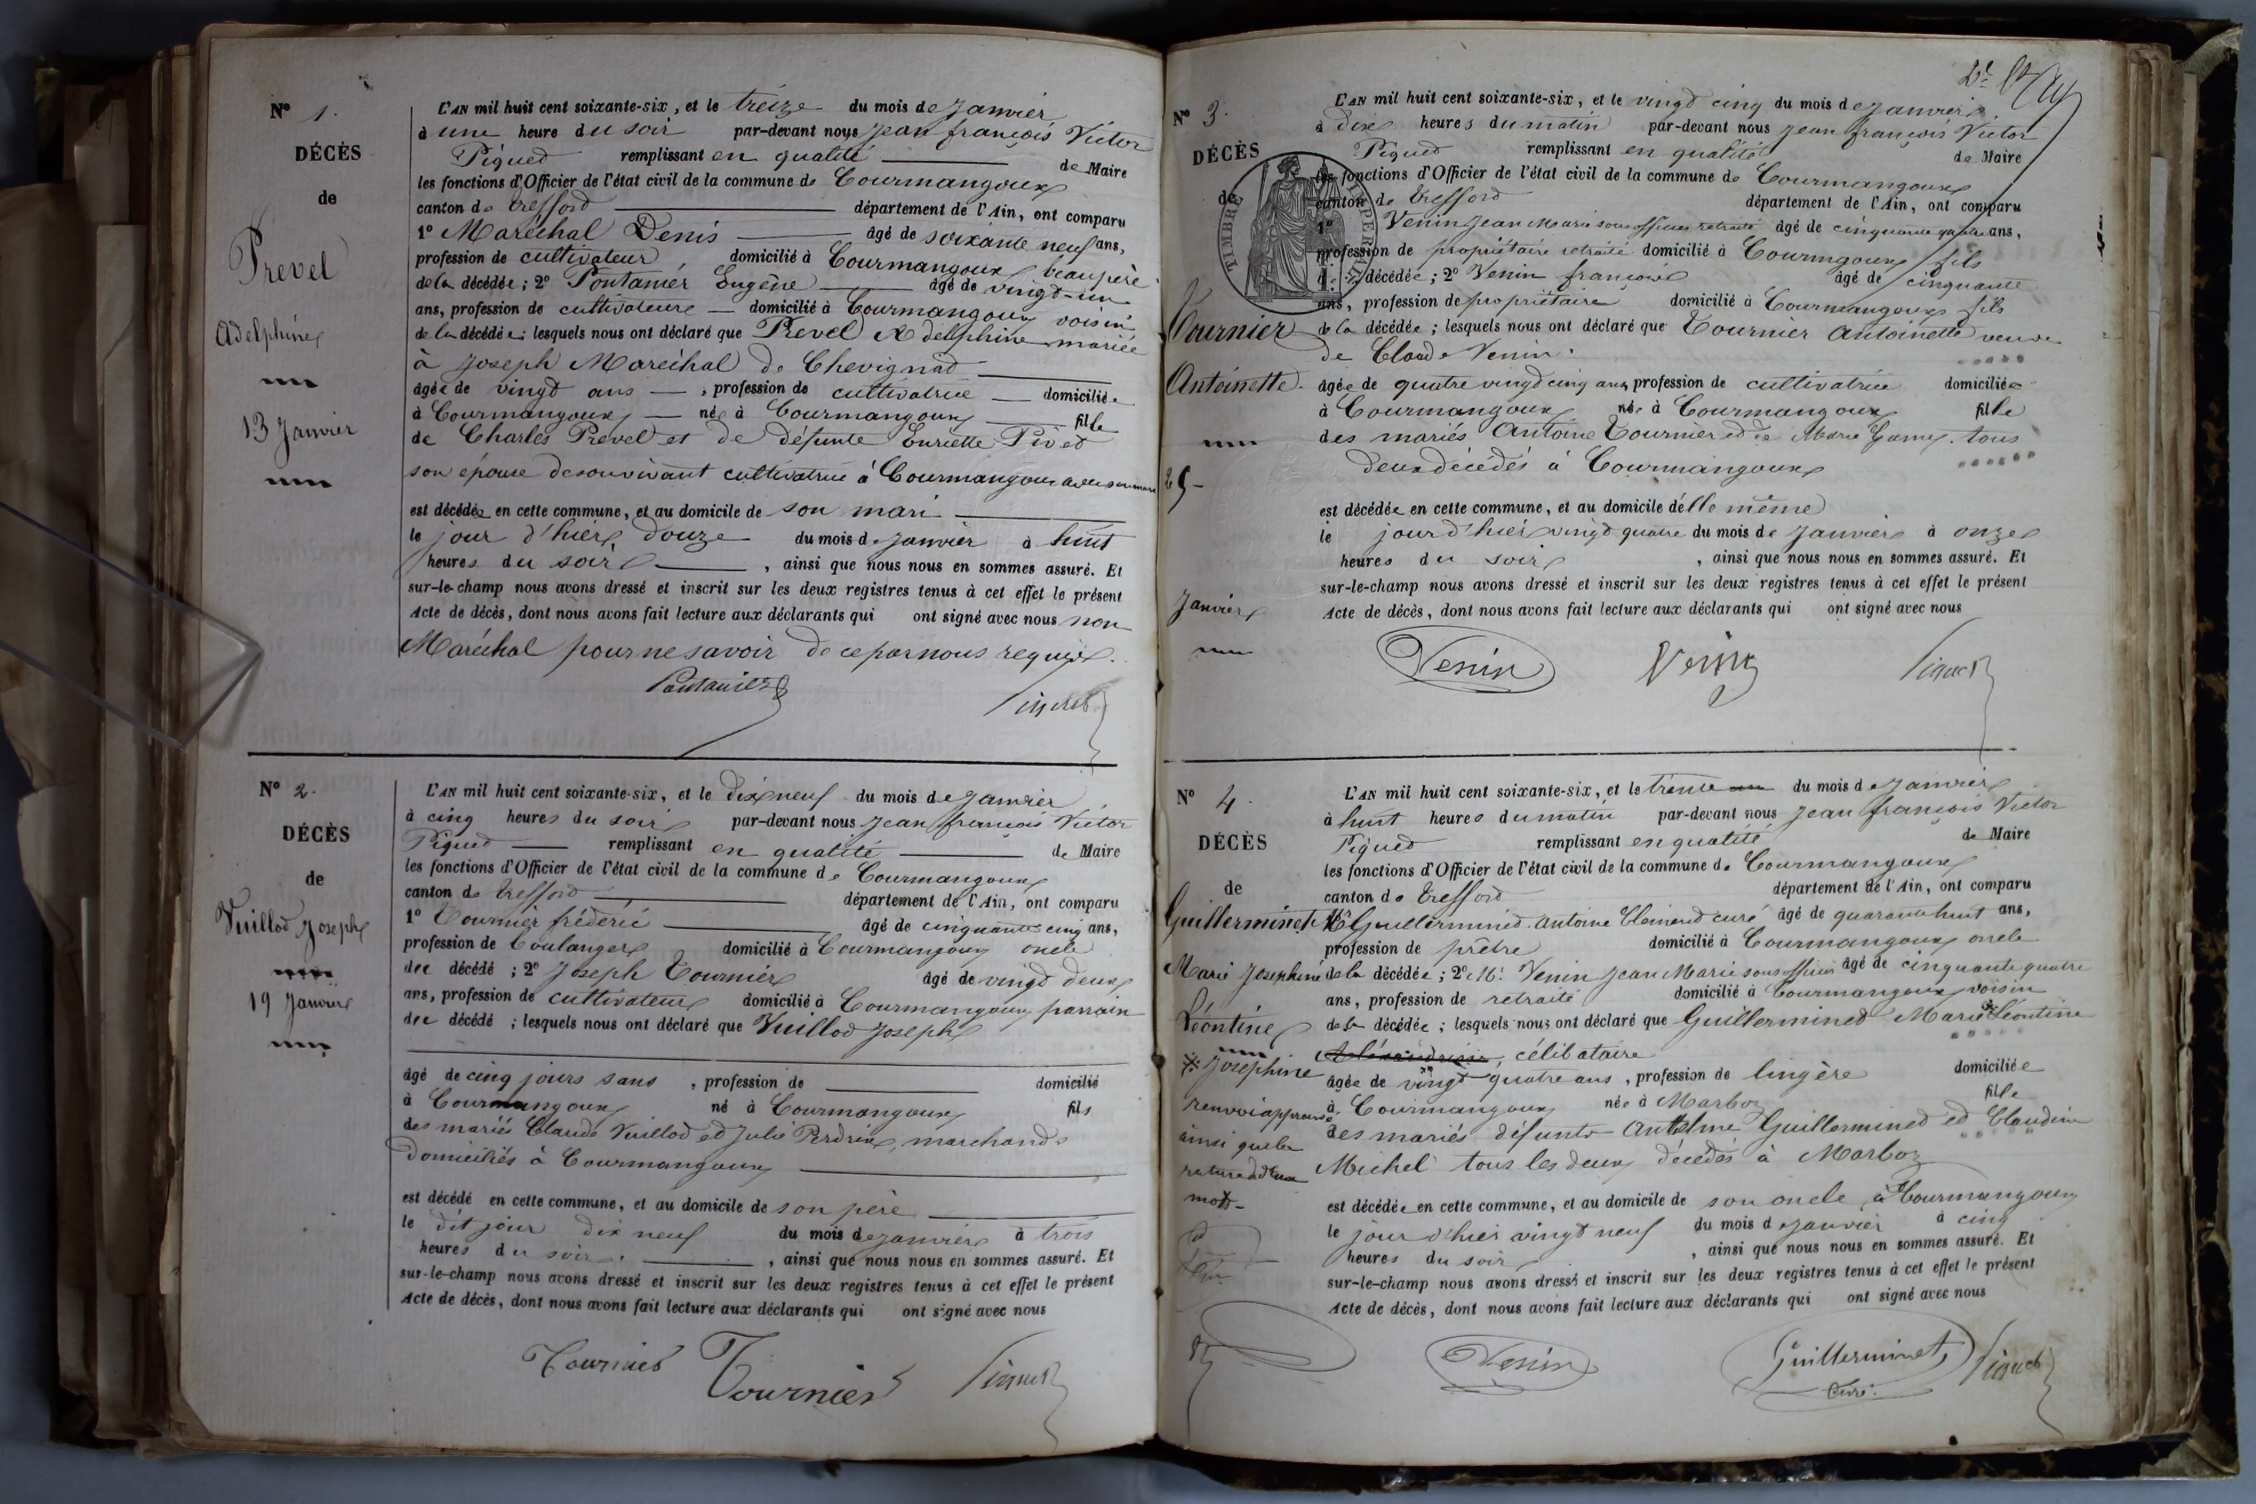 N° 1.
DÉCÈS
de
Prevel
Adelphine
13 Janvier
L'AN mil huit cent soixante-six, et le treize du mois de Janvier
à une heure du soir par-devant nous Jean françois Victor
Piqued remplissant en qualité de Maire
les fonctions d'Officier de l'état civil de la commune de Courmangoux
canton de trefford département de l'Ain, ont comparu
1° Maréchal Denis âgé de soixante neuf ans,
profession de cultivateur, domicilié à Courmangoux beaupère
de la décédée; 2° Pontanier Eugène âgé de vingt-un
ans, profession de cultivateur domicilié à Courmangoux voisin
de la décédée; lesquels nous ont déclaré que Prevel Adelphine mariée
à Joseph Maréchal de Chevignad
âgée de vingt ans, profession de cultivatrice domiciliée
à Courmangoux née à Courmangoux fille
de Charles Prevel et de défunte Enriette Pived
son épouse de souvivant cultivatrice à Courmangoux avec son mari
est décédée en cette commune, et au domicile de son mari
le jour d'hier douze du mois de Janvier à huit
heures du soir, ainsi que nous nous en sommes assuré. Et
sur-le-champ nous avons dressé et inscrit sur les deux registres tenus à cet effet le présent
Acte de décès, dont nous avons fait lecture aux déclarants qui ont signé avec nous non
Maréchal pour ne savoir de ce par nous requis.
Pontanier
Piquet
N° 2.
DÉCÈS
de
Vuillod Joseph
19 Janvier
L'AN mil huit cent soixante-six, et le dix neuf du mois de Janvier
à cinq heures du soir par-devant nous Jean françois Victor
Piqued remplissant en qualité de Maire
les fonctions d'Officier de l'état civil de la commune de Courmangoux
canton de trefford département de l'Ain, ont comparu
1° Tournier fréderic âgé de cinquante cinq ans,
profession de boulanger domicilié à Courmangoux oncle
du décédé; 2° Joseph Tournier âgé de vingt deux
ans, profession de cultivateur domicilié à Courmangoux parrain
du décédé; lesquels nous ont déclaré que Vuillod Joseph
âgé de cinq jours sans, profession de domicilié
à Courmangoux né à Courmangoux fils
des mariés Claude Vuillod et Julie Perdrix, marchands
domiciliés à Courmangoux
est décédé en cette commune, et au domicile de son père
le dit jour dix neuf du mois de janvier à trois
heures du soir, ainsi que nous nous en sommes assuré. Et
sur-le-champ nous avons dressé et inscrit sur les deux registres tenus à cet effet le présent
Acte de décès, dont nous avons fait lecture aux déclarants qui ont signé avec nous
Tournier Tournier Piquet
N° 3.
DÉCÈS
de
TIMBRE IMPERIAL
Tournier
Antoinette.
25
Janvier
L'AN mil huit cent soixante-six, et le vingt cinq du mois de Janvier
à dix heures du matin par-devant nous Jean françois Victor
Piqued remplissant en qualité de Maire
les fonctions d'Officier de l'état civil de la commune de Courmangoux
canton de trefford département de l'Ain, ont comparu
1° Venin Jean Marie sous officier retraité âgé de cinquante quatre ans,
profession de propriétaire retraité domicilié à Courmgoux fils
de la décédée; 2° Venin françois âgé de cinquante
ans, profession de propriétaire domicilié à Courmangoux fils
de la décédée; lesquels nous ont déclaré que Tournier Antoinette veuve
de Claude Venin.
âgée de quatre vingt cinq ans, profession de cultivatrice domiciliée
à Courmangoux née à Courmangoux fille
des mariés Antoine Tournier et de Marie tous
deux décédés à Courmangoux
est décédée en cette commune, et au domicile d'elle même
le jour d'hier vingt quatre du mois de Janvier à onze
heures du soir, ainsi que nous nous en sommes assuré. Et
sur-le-champ nous avons dressé et inscrit sur les deux registres tenus à cet effet le présent
Acte de décès, dont nous avons fait lecture aux déclarants qui ont signé avec nous
Venin Venin Piquet
N° 4.
DÉCÈS
de
Guillerminet
Marie Josephine
Léontine
※ Josephine
renvoi approuvé
ainsi que la
rature de deux
mots
L'AN mil huit cent soixante-six, et le trente du mois de Janvier
à huit heures du matin par-devant nous Jean françois Victor
Piqued remplissant en qualité de Maire
les fonctions d'Officier de l'état civil de la commune de Courmangoux
canton de trefford département de l'Ain, ont comparu
1° Guillermined Antoine Clement curé âgé de quarante huit ans,
profession de prêtre domicilié à Courmangoux oncle
de la décédée; 2° Mr. Venin Jean Marie sous officier âgé de cinquante quatre
ans, profession de retraité domicilié à Courmangoux voisin
de la décédée; lesquels nous ont déclaré que Guillermined Marie ※ Léontine
célibataire
âgée de vingt quatre ans, profession de lingère domiciliée
à Courmangoux née à Marboz fille
des mariés défunts Anthelme Guillermined et Claudine
Michel tous les deux décédés à Marboz
est décédée en cette commune, et au domicile de son oncle à Courmangoux
le jour d'hier vingt neuf du mois de janvier à cinq
heures du soir, ainsi que nous nous en sommes assuré. Et
sur-le-champ nous avons dressé et inscrit sur les deux registres tenus à cet effet le présent
Acte de décès, dont nous avons fait lecture aux déclarants qui ont signé avec nous
Venin Guillerminet Piquet
Curé.